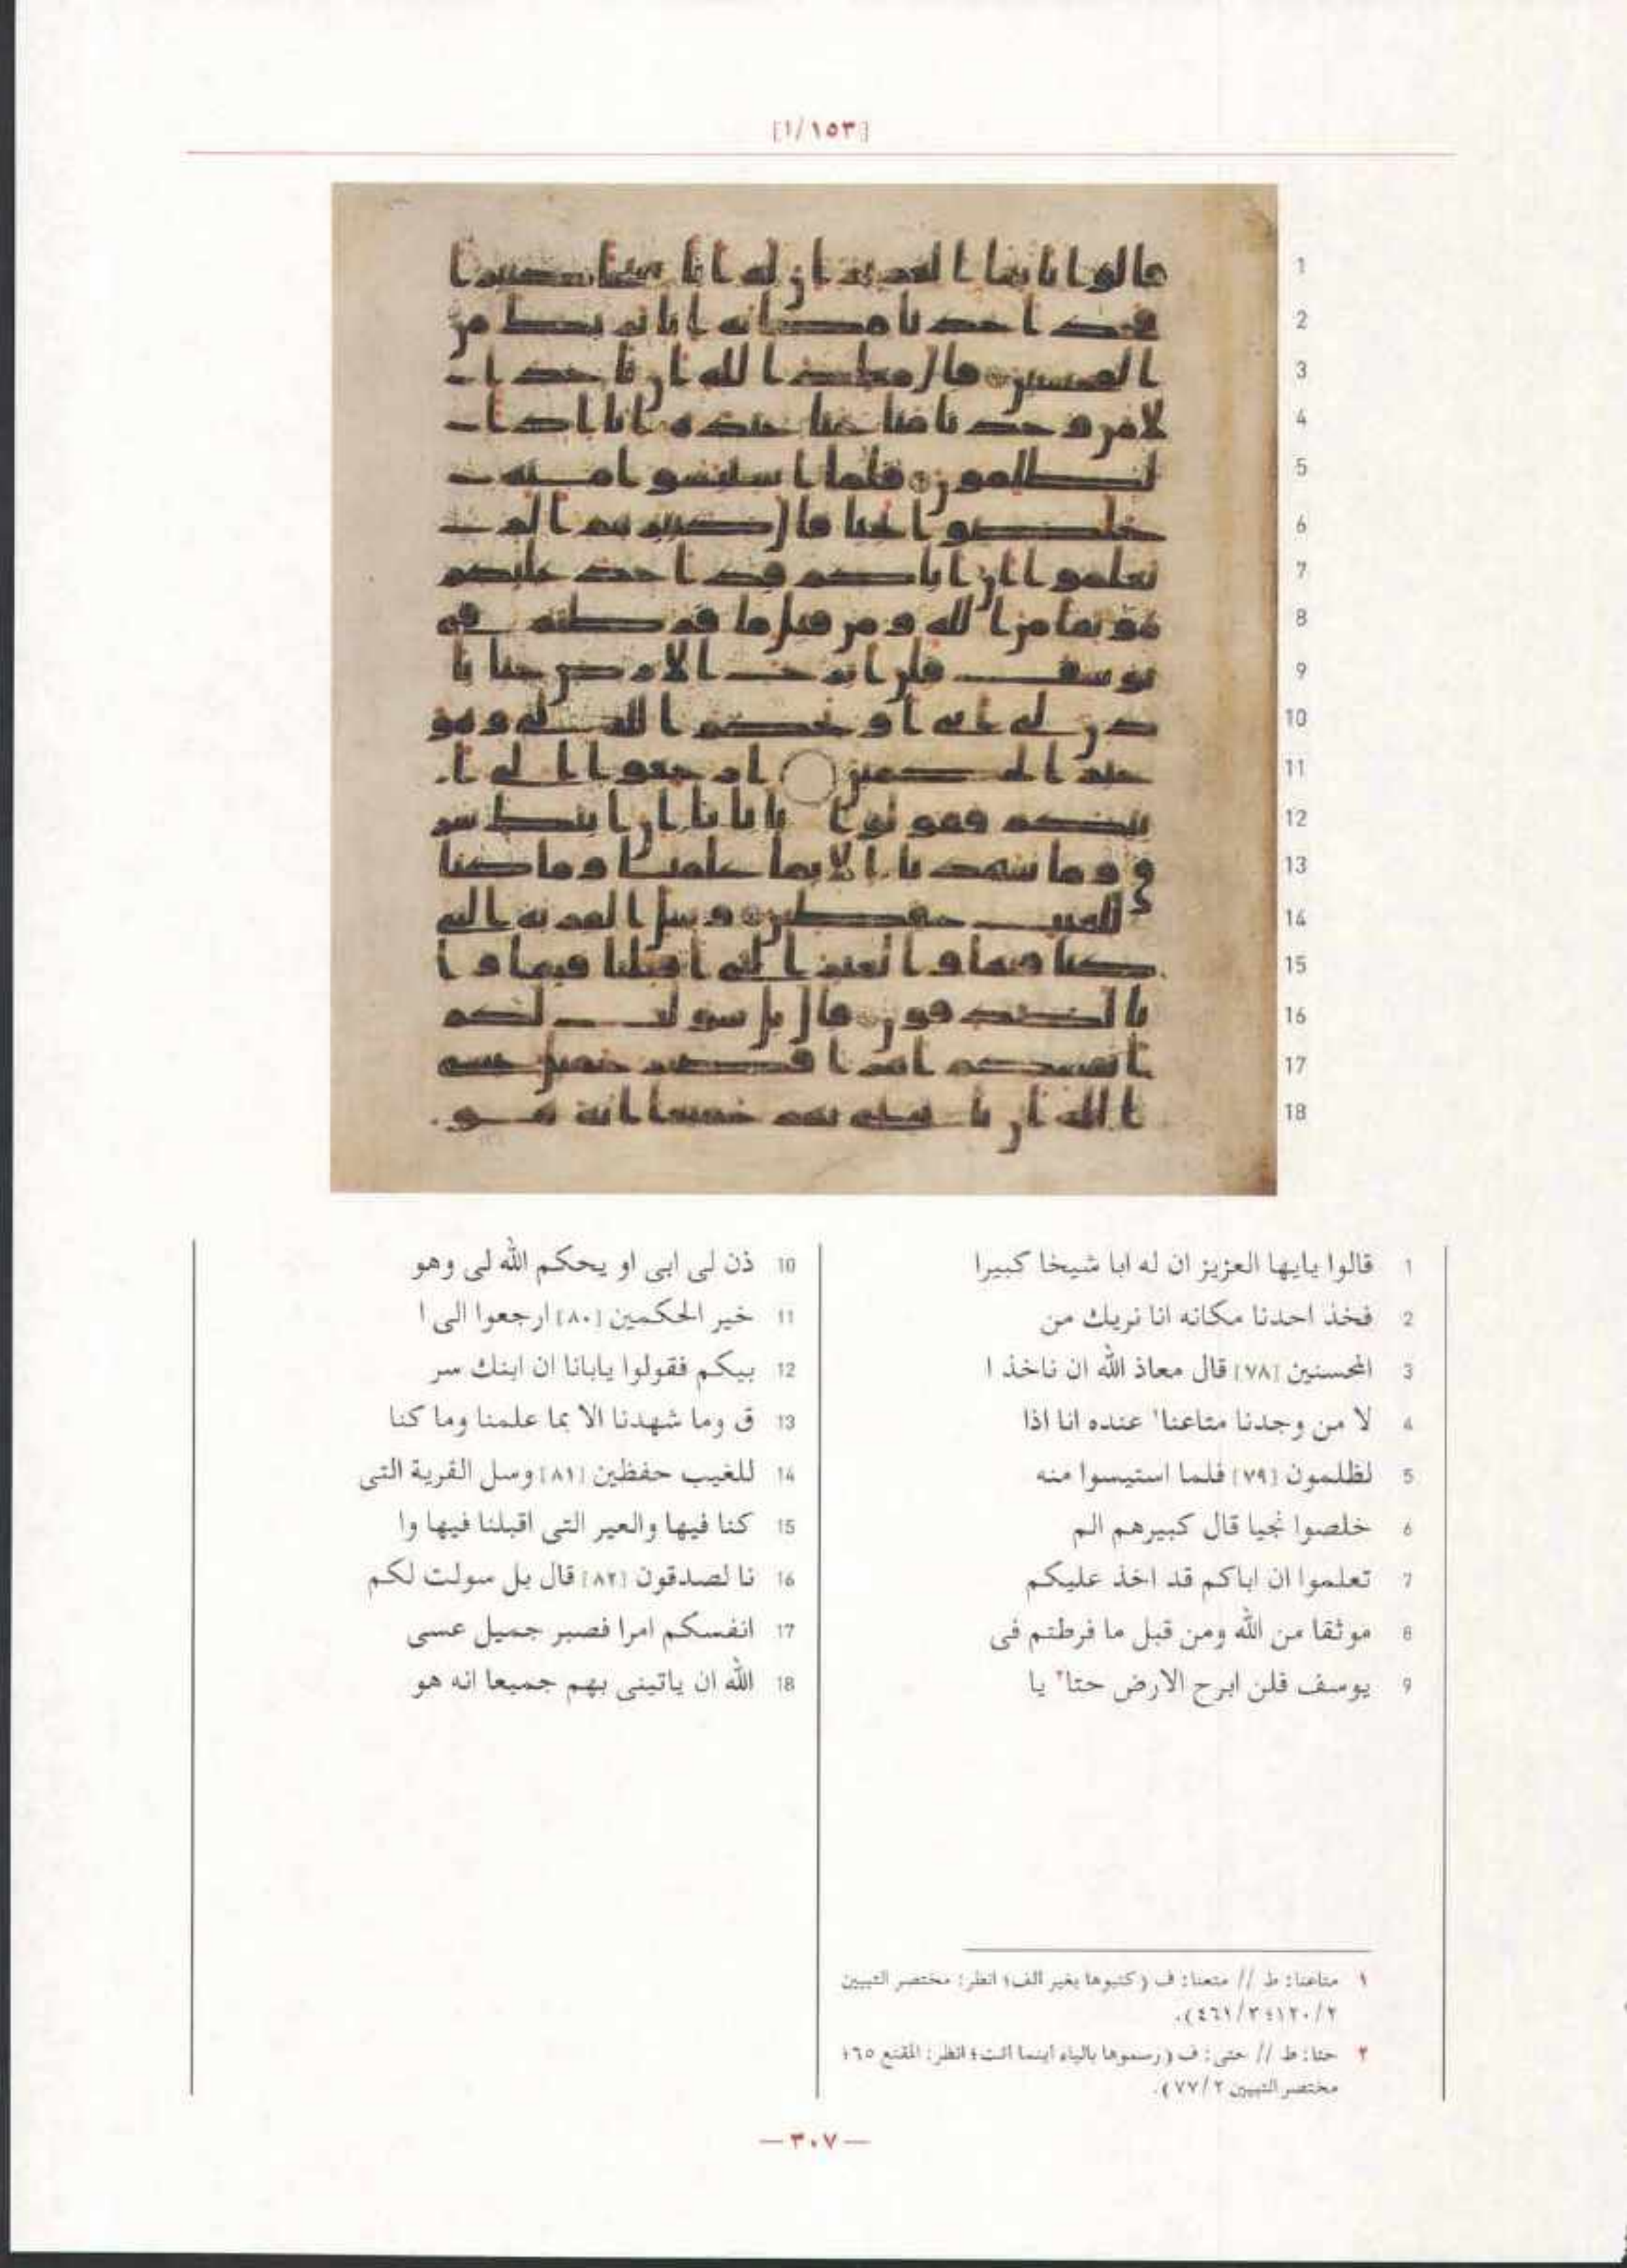 [١/١٥٣]
1 قالوا يايها العزيز ان له ابا شيخا كبيرا
2 فخذ احدنا مكانه انا نريك من
3 المحسنين [٧٨] قال معاذ الله ان ناخذ ا
4 لا من وجدنا متاعنا١ عنده انا اذا
5 لظلمون [٧٩] فلما استيسوا منه
6 خلصوا نجيا قال كبيرهم الم
7 تعلموا ان اباكم قد اخذ عليكم
8 موثقا من الله ومن قبل ما فرطتم فى
9 يوسف فلن ابرح الارض حتا٢ يا
10 ذن لى ابى او يحكم الله لى وهو
11 خير الحكمين [٨٠] ارجعوا الى ا
12 بيكم فقولوا يابانا ان ابنك سر
13 ق وما شهدنا الا بما علمنا وما كنا
14 للغيب حفظين [٨١] وسل القرية التى
15 كنا فيها والعير التى اقبلنا فيها وا
16 نا لصدقون [٨٢] قال بل سولت لكم
17 انفسكم امرا فصبر جميل عسى
18 الله ان ياتينى بهم جميعا انه هو
١ متاعنا: ط // متعنا: ف (كتبوها بغير الف؛ انظر: مختصر التبيين
٢/١٢٠؛ ٣/٤٦١).
٢ حتا: ط // حتى: ف (رسموها بالياء اينما اتت؛ انظر: المقنع ٦٥؛
مختصر التبيين ٢/٧٧).
— ٣٠٧ —